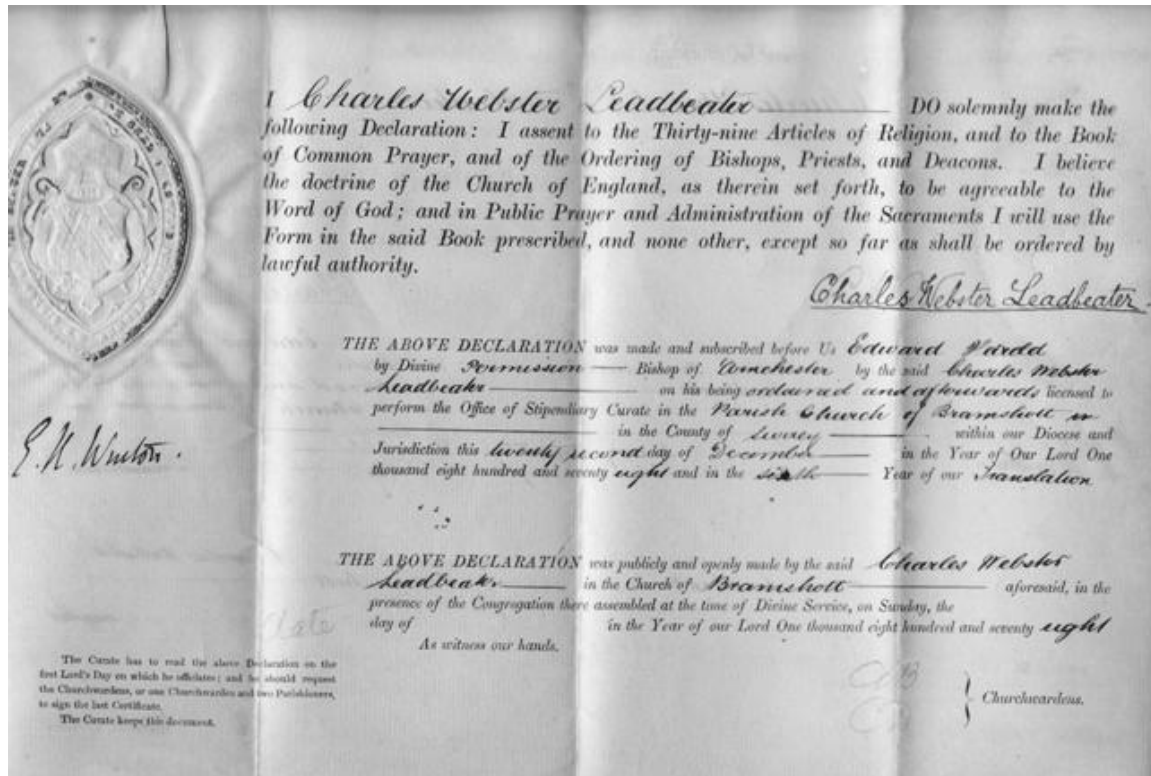 I Charles Webster Leadbeater DO solemnly make the
following Declaration: I assent to the Thirty-nine Articles of Religion, and to the Book
of Common Prayer, and of the Ordering of Bishops, Priests, and Deacons. I believe
the doctrine of the Church of England, as therein set forth, to be agreeable to the
Word of God; and in Public Prayer and Administration of the Sacraments I will use the
Form in the said Book prescribed, and none other, except so far as shall be ordered by
lawful authority.
Charles Webster Leadbeater
THE ABOVE DECLARATION was made and subscribed before Us Edward
by Divine Permission Bishop of by the said Charles Webster
Leadbeater on his being ordained and afterwards licensed to
perform the Office of Stipendiary Curate in the Parish Church of Bramshott in
in the County of within our Diocese and
Jurisdiction this twenty second day of December in the Year of Our Lord One
thousand eight hundred and seventy eight and in the sixth Year of our Translation
E. H. Winton.
THE ABOVE DECLARATION was publicly and openly made by the said Charles Webster
Leadbeater in the Church of Bramshott aforesaid, in the
presence of the Congregation there assembled at the time of Divine Service, on Sunday, the
day of in the Year of our Lord One thousand eight hundred and seventy eight
As witness our hands.
Churchwardens.
The Curate has to read the above Declaration on the
first Lord's Day on which he officiates; and he should request
the Churchwardens, or one Churchwarden and two Parishioners,
to sign the last Certificate.
The Curate keeps this document.